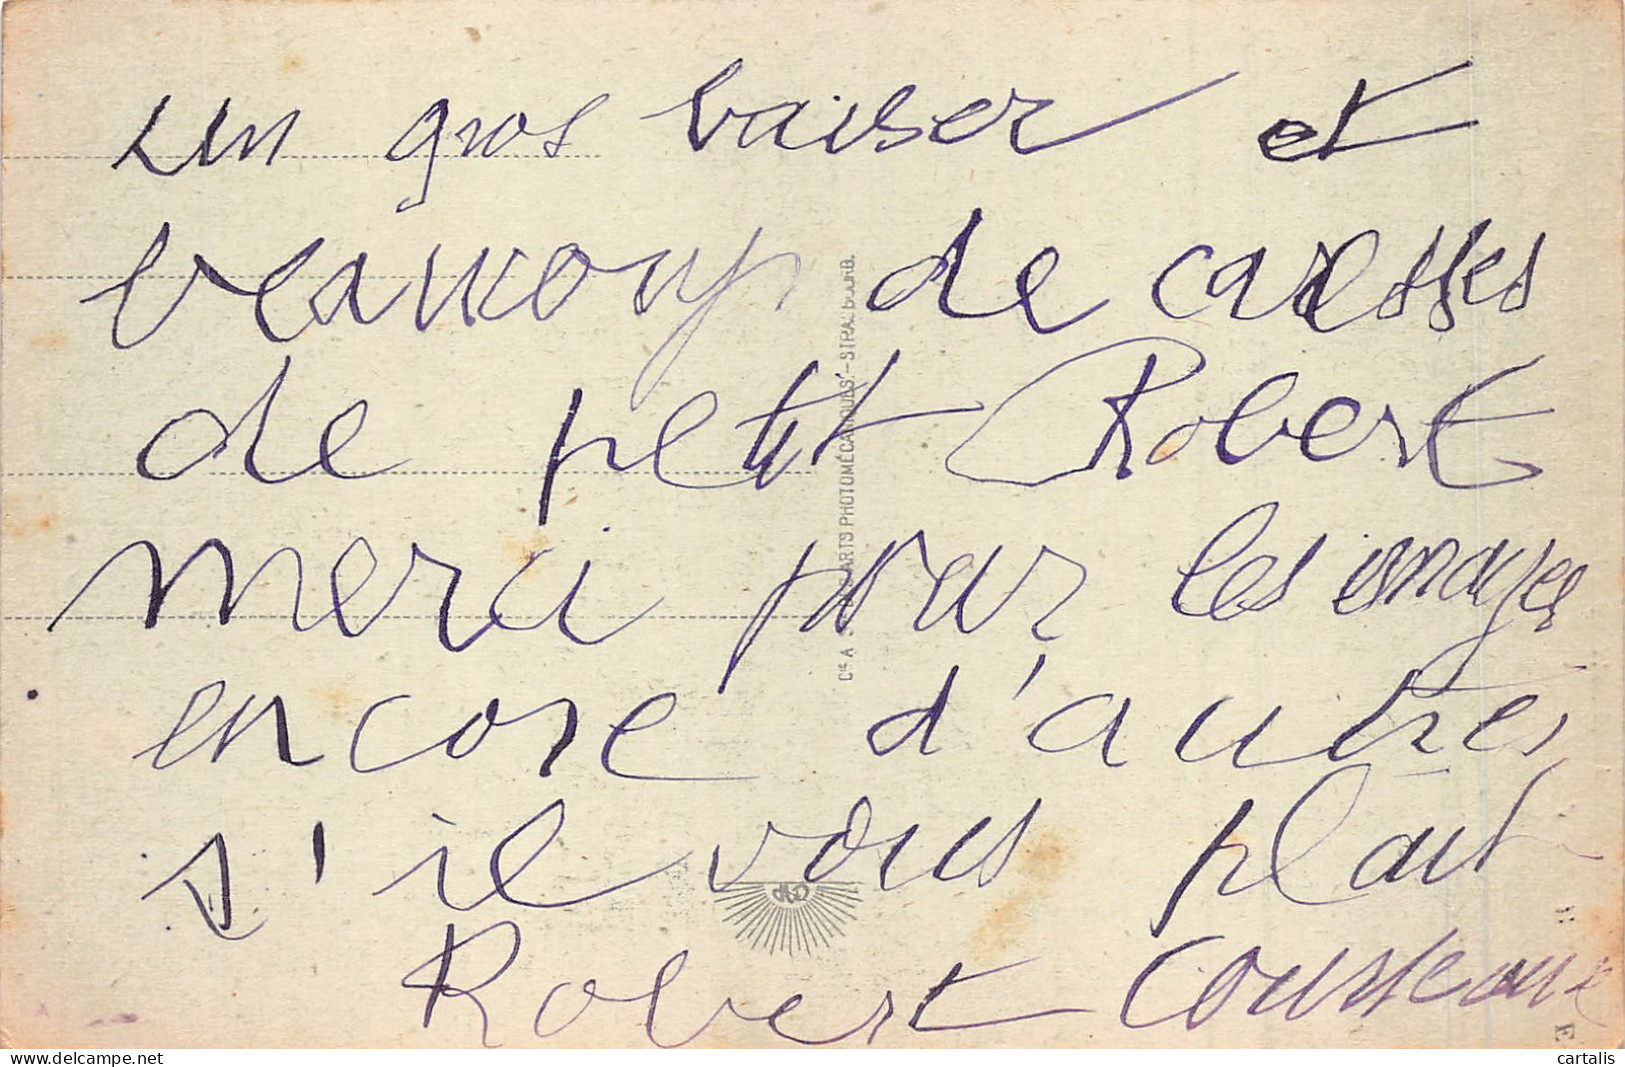 un gros baiser et
beaucoup de caresses
de petit Robert
merci pour les images
encore d'autres
s'il vous plait
Robert
Cie A ARTS PHOTOMÉCANIQUES.-STRASBOURG.
cartalis